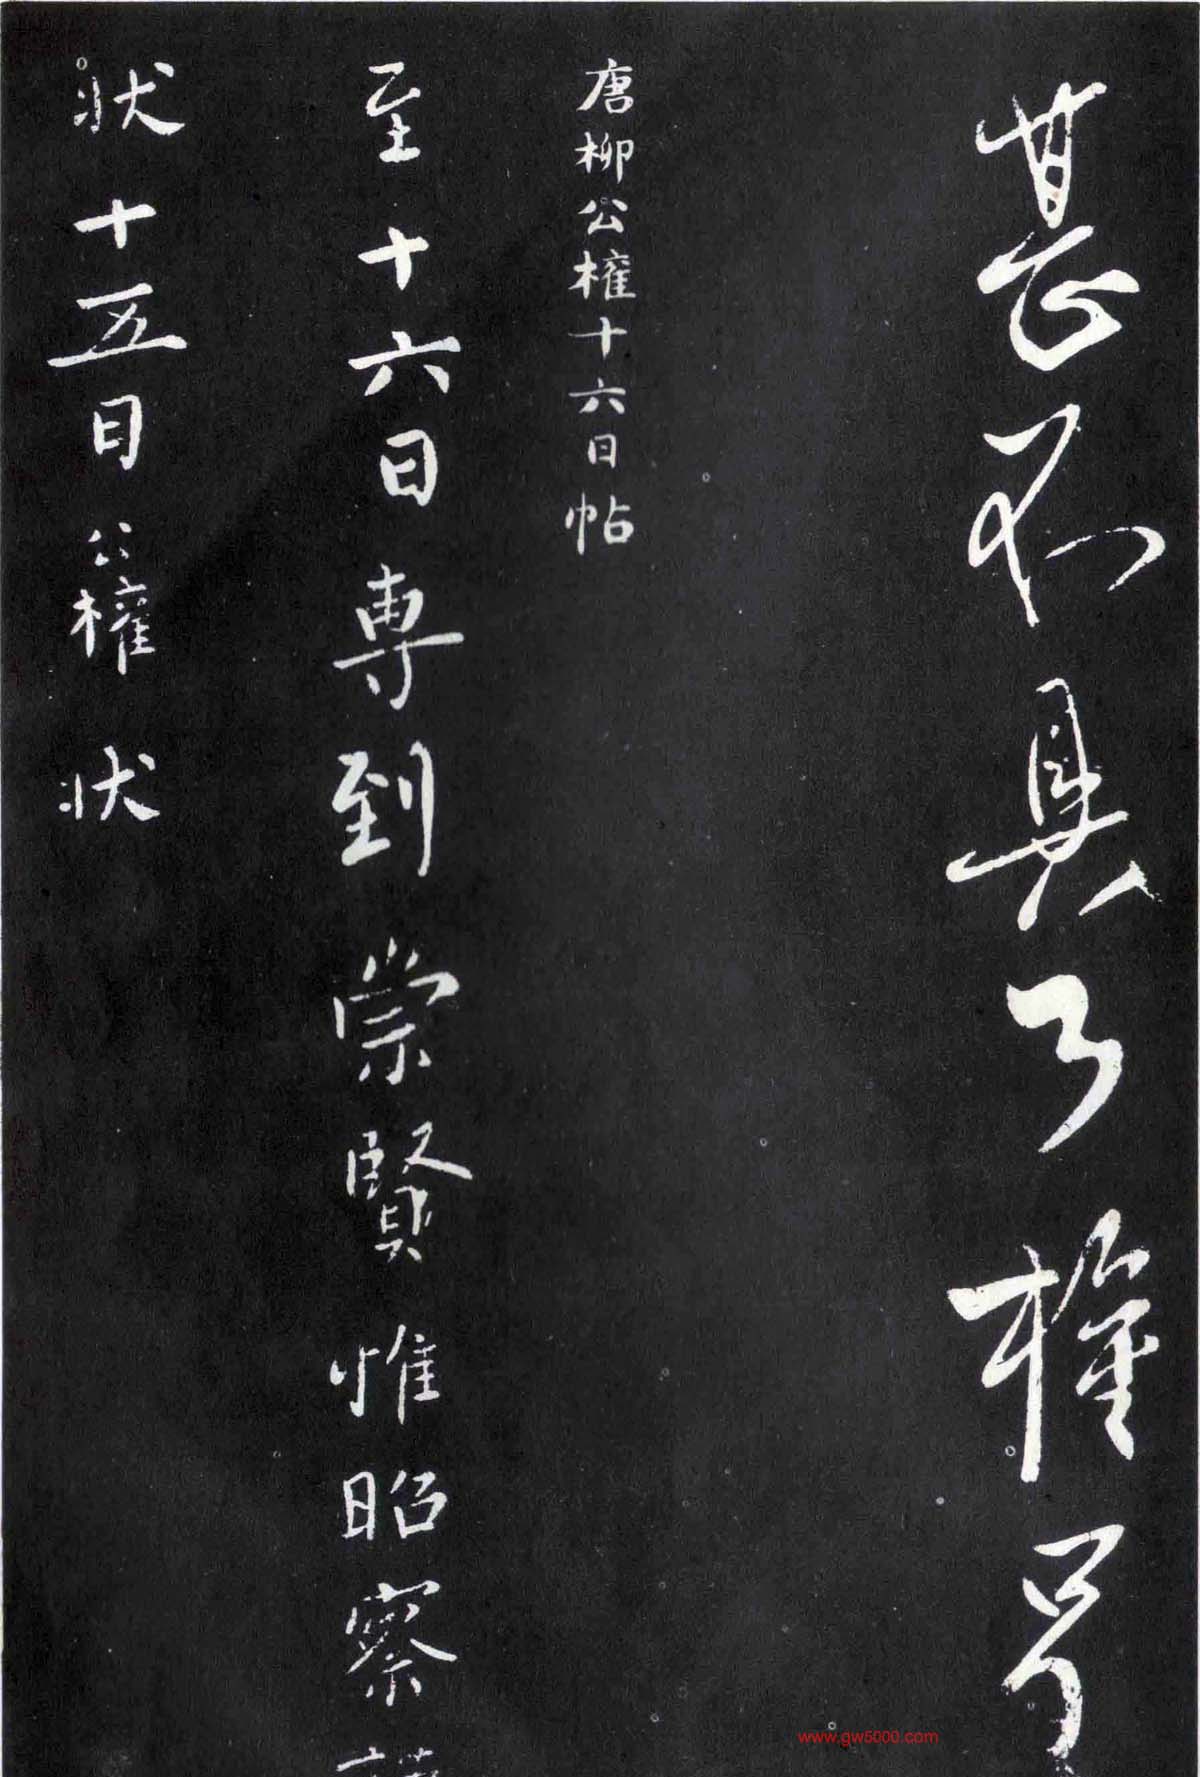 甚不具
唐柳公權十六日帖
至十六日專到崇賢惟昭察謹
狀十五日公權狀
www.gw5000.com